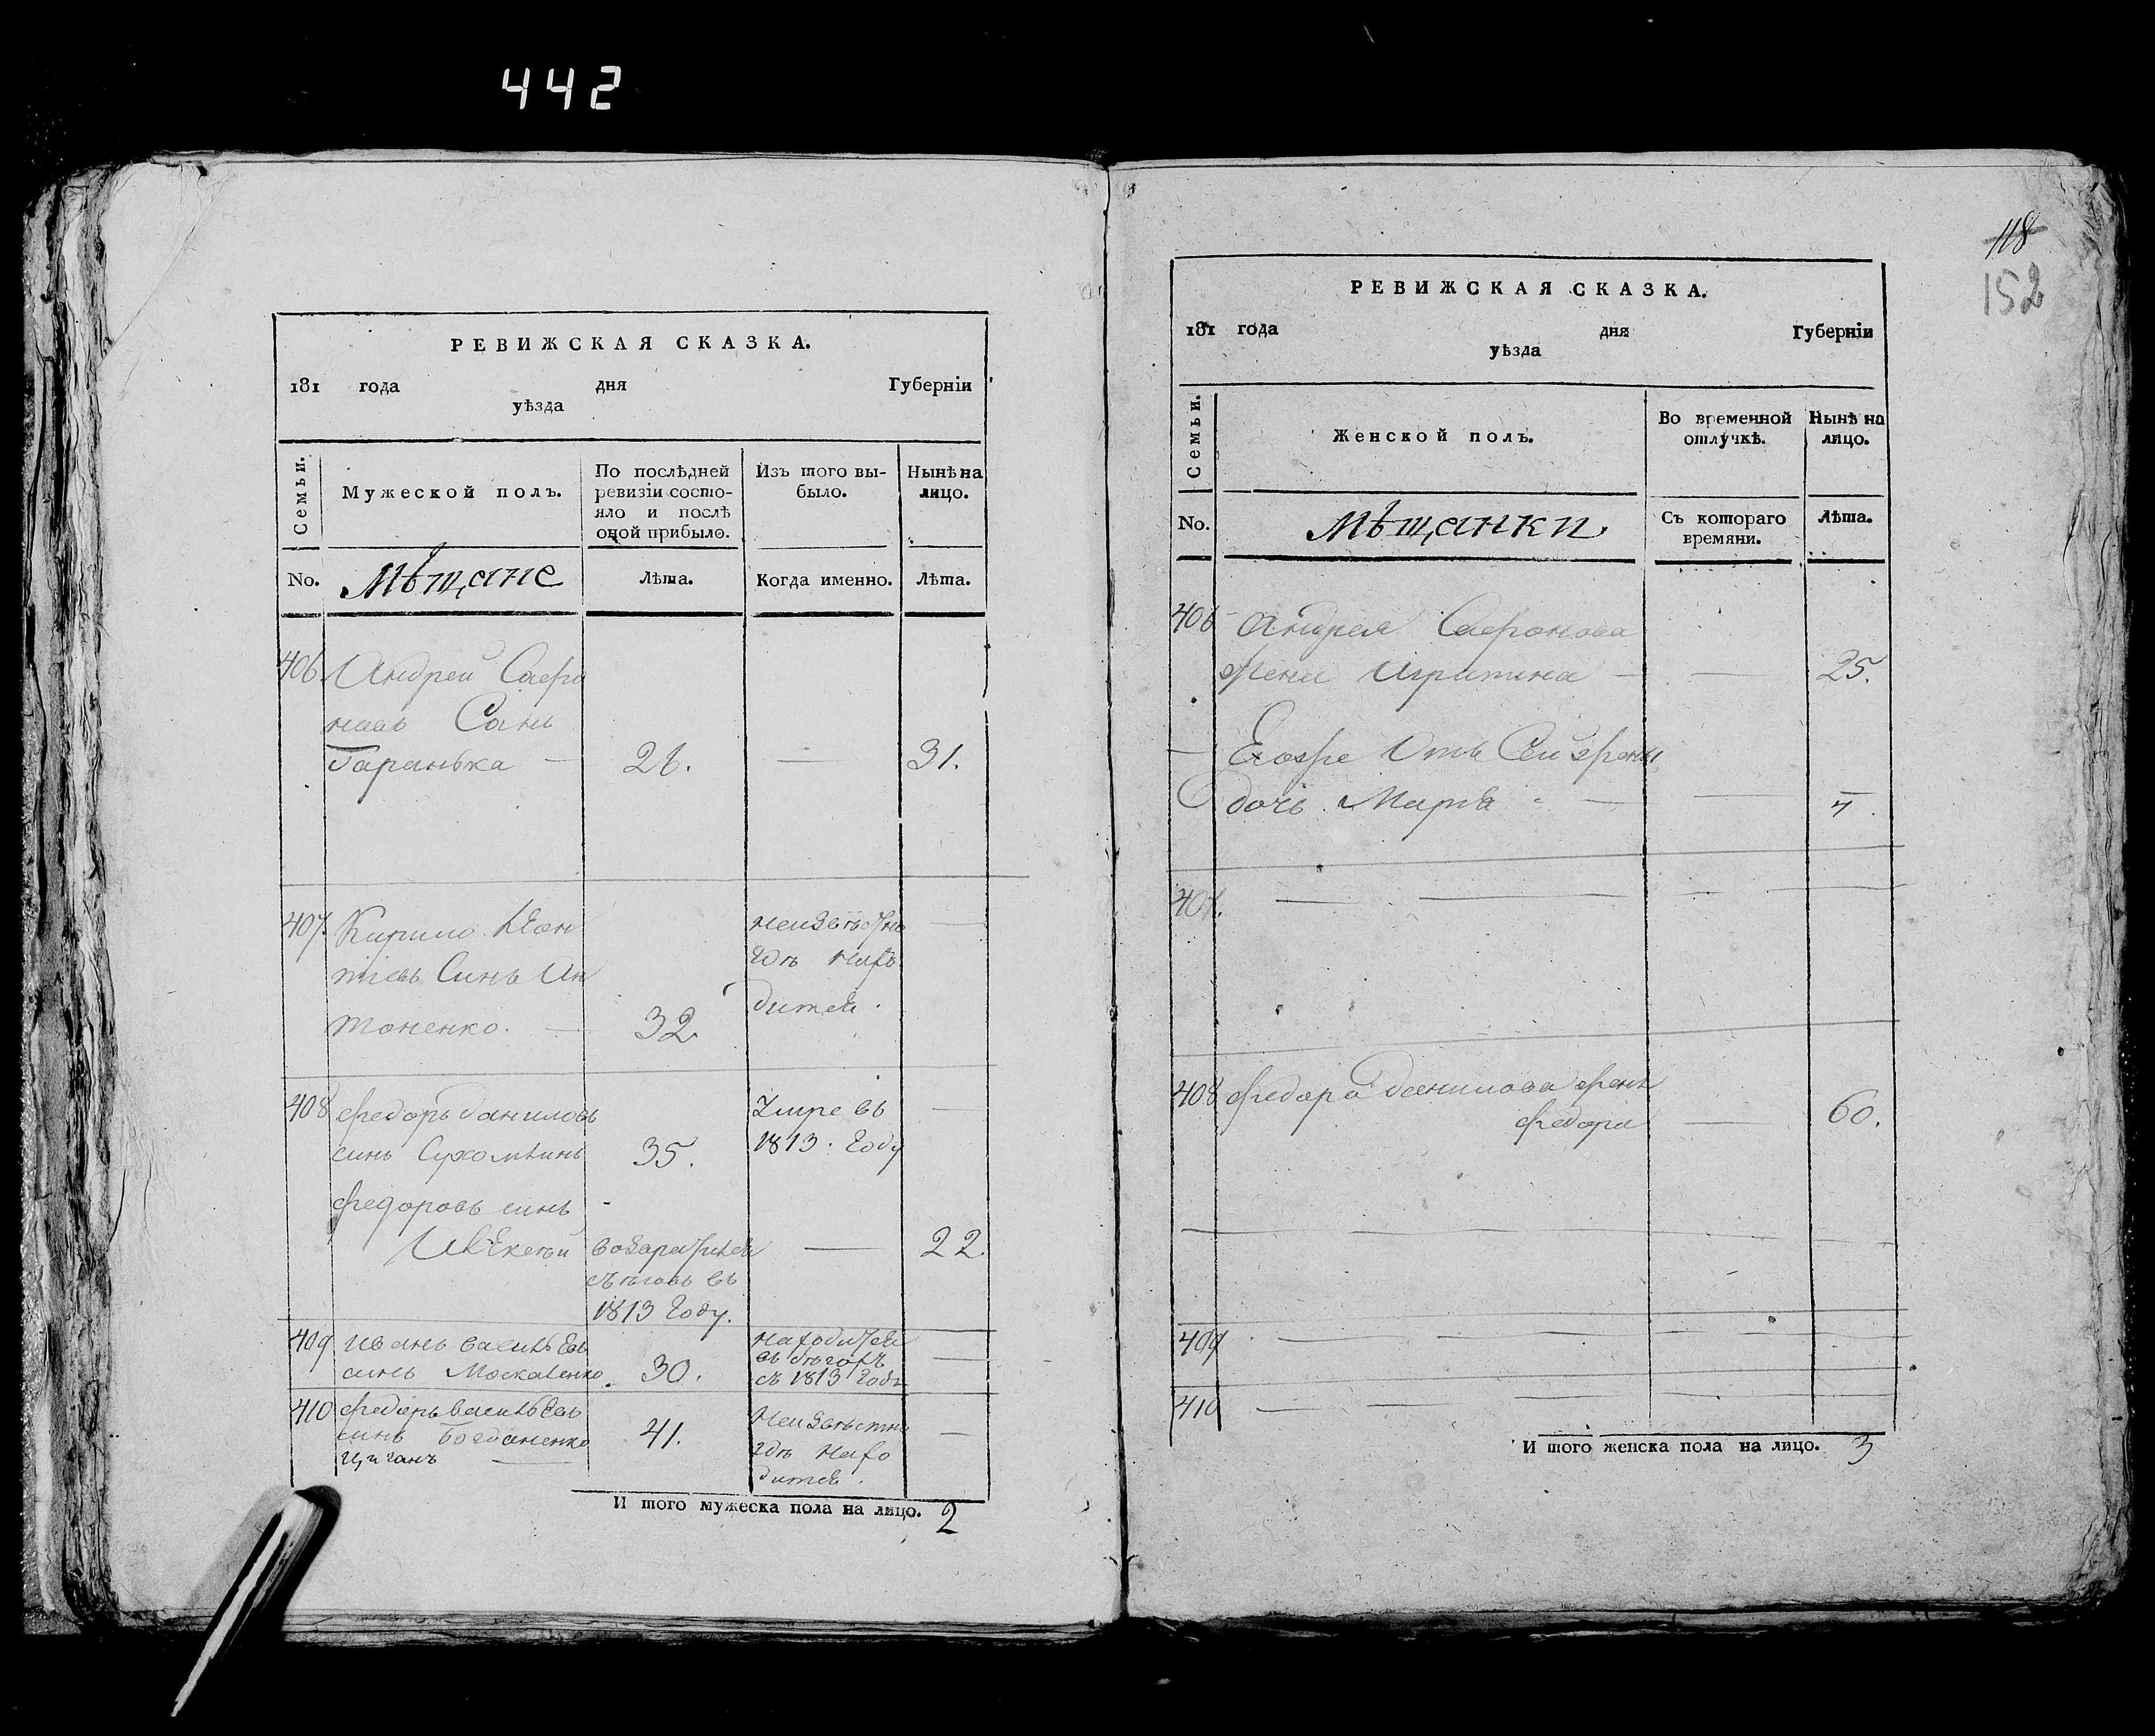 442
РЕВИЖСКАЯ СКАЗКА.
181 года дня Губерніи
уѣзда
Семьи.
Мужеской полъ.
По послѣдней
ревизіи состо-
яло и послѣ
оной прибыло.
Изъ того вы-
было.
Нынѣ на
лицо.
No.
Мѣщане
Лѣта.
Когда именно.
Лѣта.
406. Андрей Сафро
новъ Синъ
Таранька — 26. — 31.
407. Кирило Леон
тіевъ Синъ Ан
тоненко. — 32
неизвѣстно
гдѣ нахо
дится.
—
408 Федоръ Даниловъ
синъ Сухомлинъ 35.
Умре въ
1813. Году
—
Федоровъ синъ
Алексѣй
возвратился
съ бѣговъ въ
1813 Году.
— 22.
409 Иванъ Васильевъ
синъ Москаленко. 30.
находится
въ бѣгахъ
съ 1813 Году
—
410 Федоръ Васильевъ
синъ Богданенко
Циганъ — 41.
Неизвѣстно
гдѣ нахо
дится.
—
И того мужеска пола на лицо. 2
118
152
РЕВИЖСКАЯ СКАЗКА.
181 года дня Губерніи
уѣзда
Семьи.
Женской полъ.
Во временной
отлучкѣ.
Нынѣ на
лицо.
No.
Мѣщанки
Съ котораго
времяни.
Лѣта.
406 Андрея Сафронова
жена — — 25.
Его же отъ сей жены
дочь Марія — — 7.
407. — —
408 Федора Данилова жена
Федора — 60.
409 — —
410 — —
И того женска пола на лицо. 3